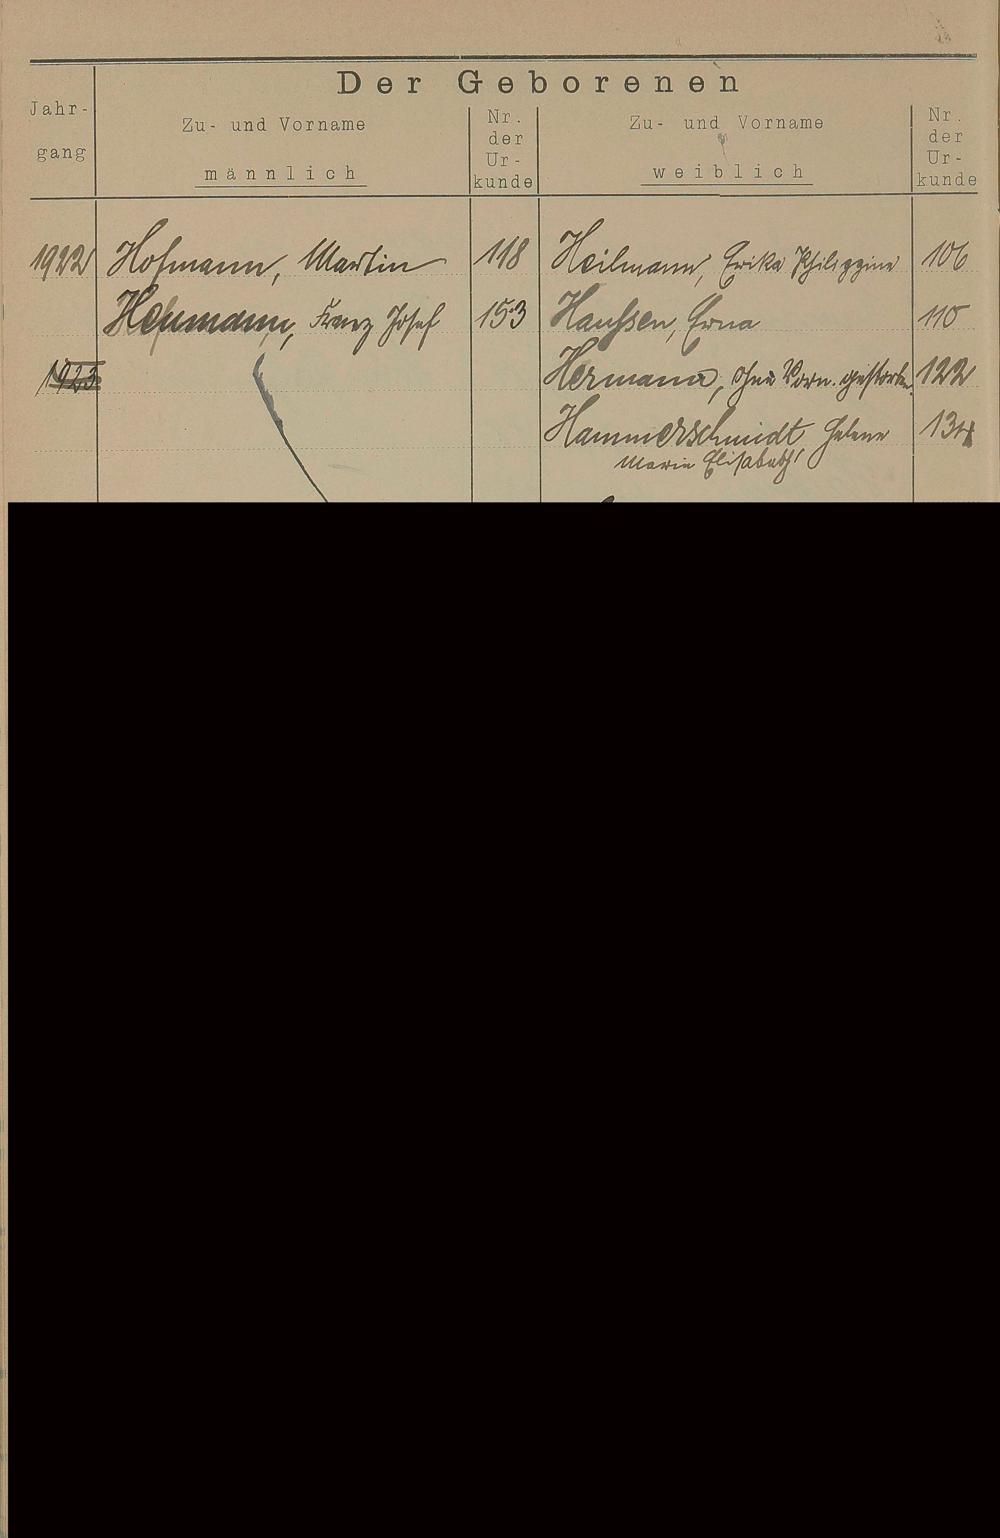 Der Geborenen
Jahr-
gang
Zu- und Vorname
männlich
Nr.
der
Ur-
kunde
Zu- und Vorname
weiblich
Nr.
der
Ur-
kunde
1922 Hofmann, Martin 118 Heilmann, Erika Philippine 106
Franz Josef 153 Haußen, Erna 110
1923 Hermann, ohne Vorn. gestorben 122
Hammerschmidt Helene 134
Maria Elisabeth